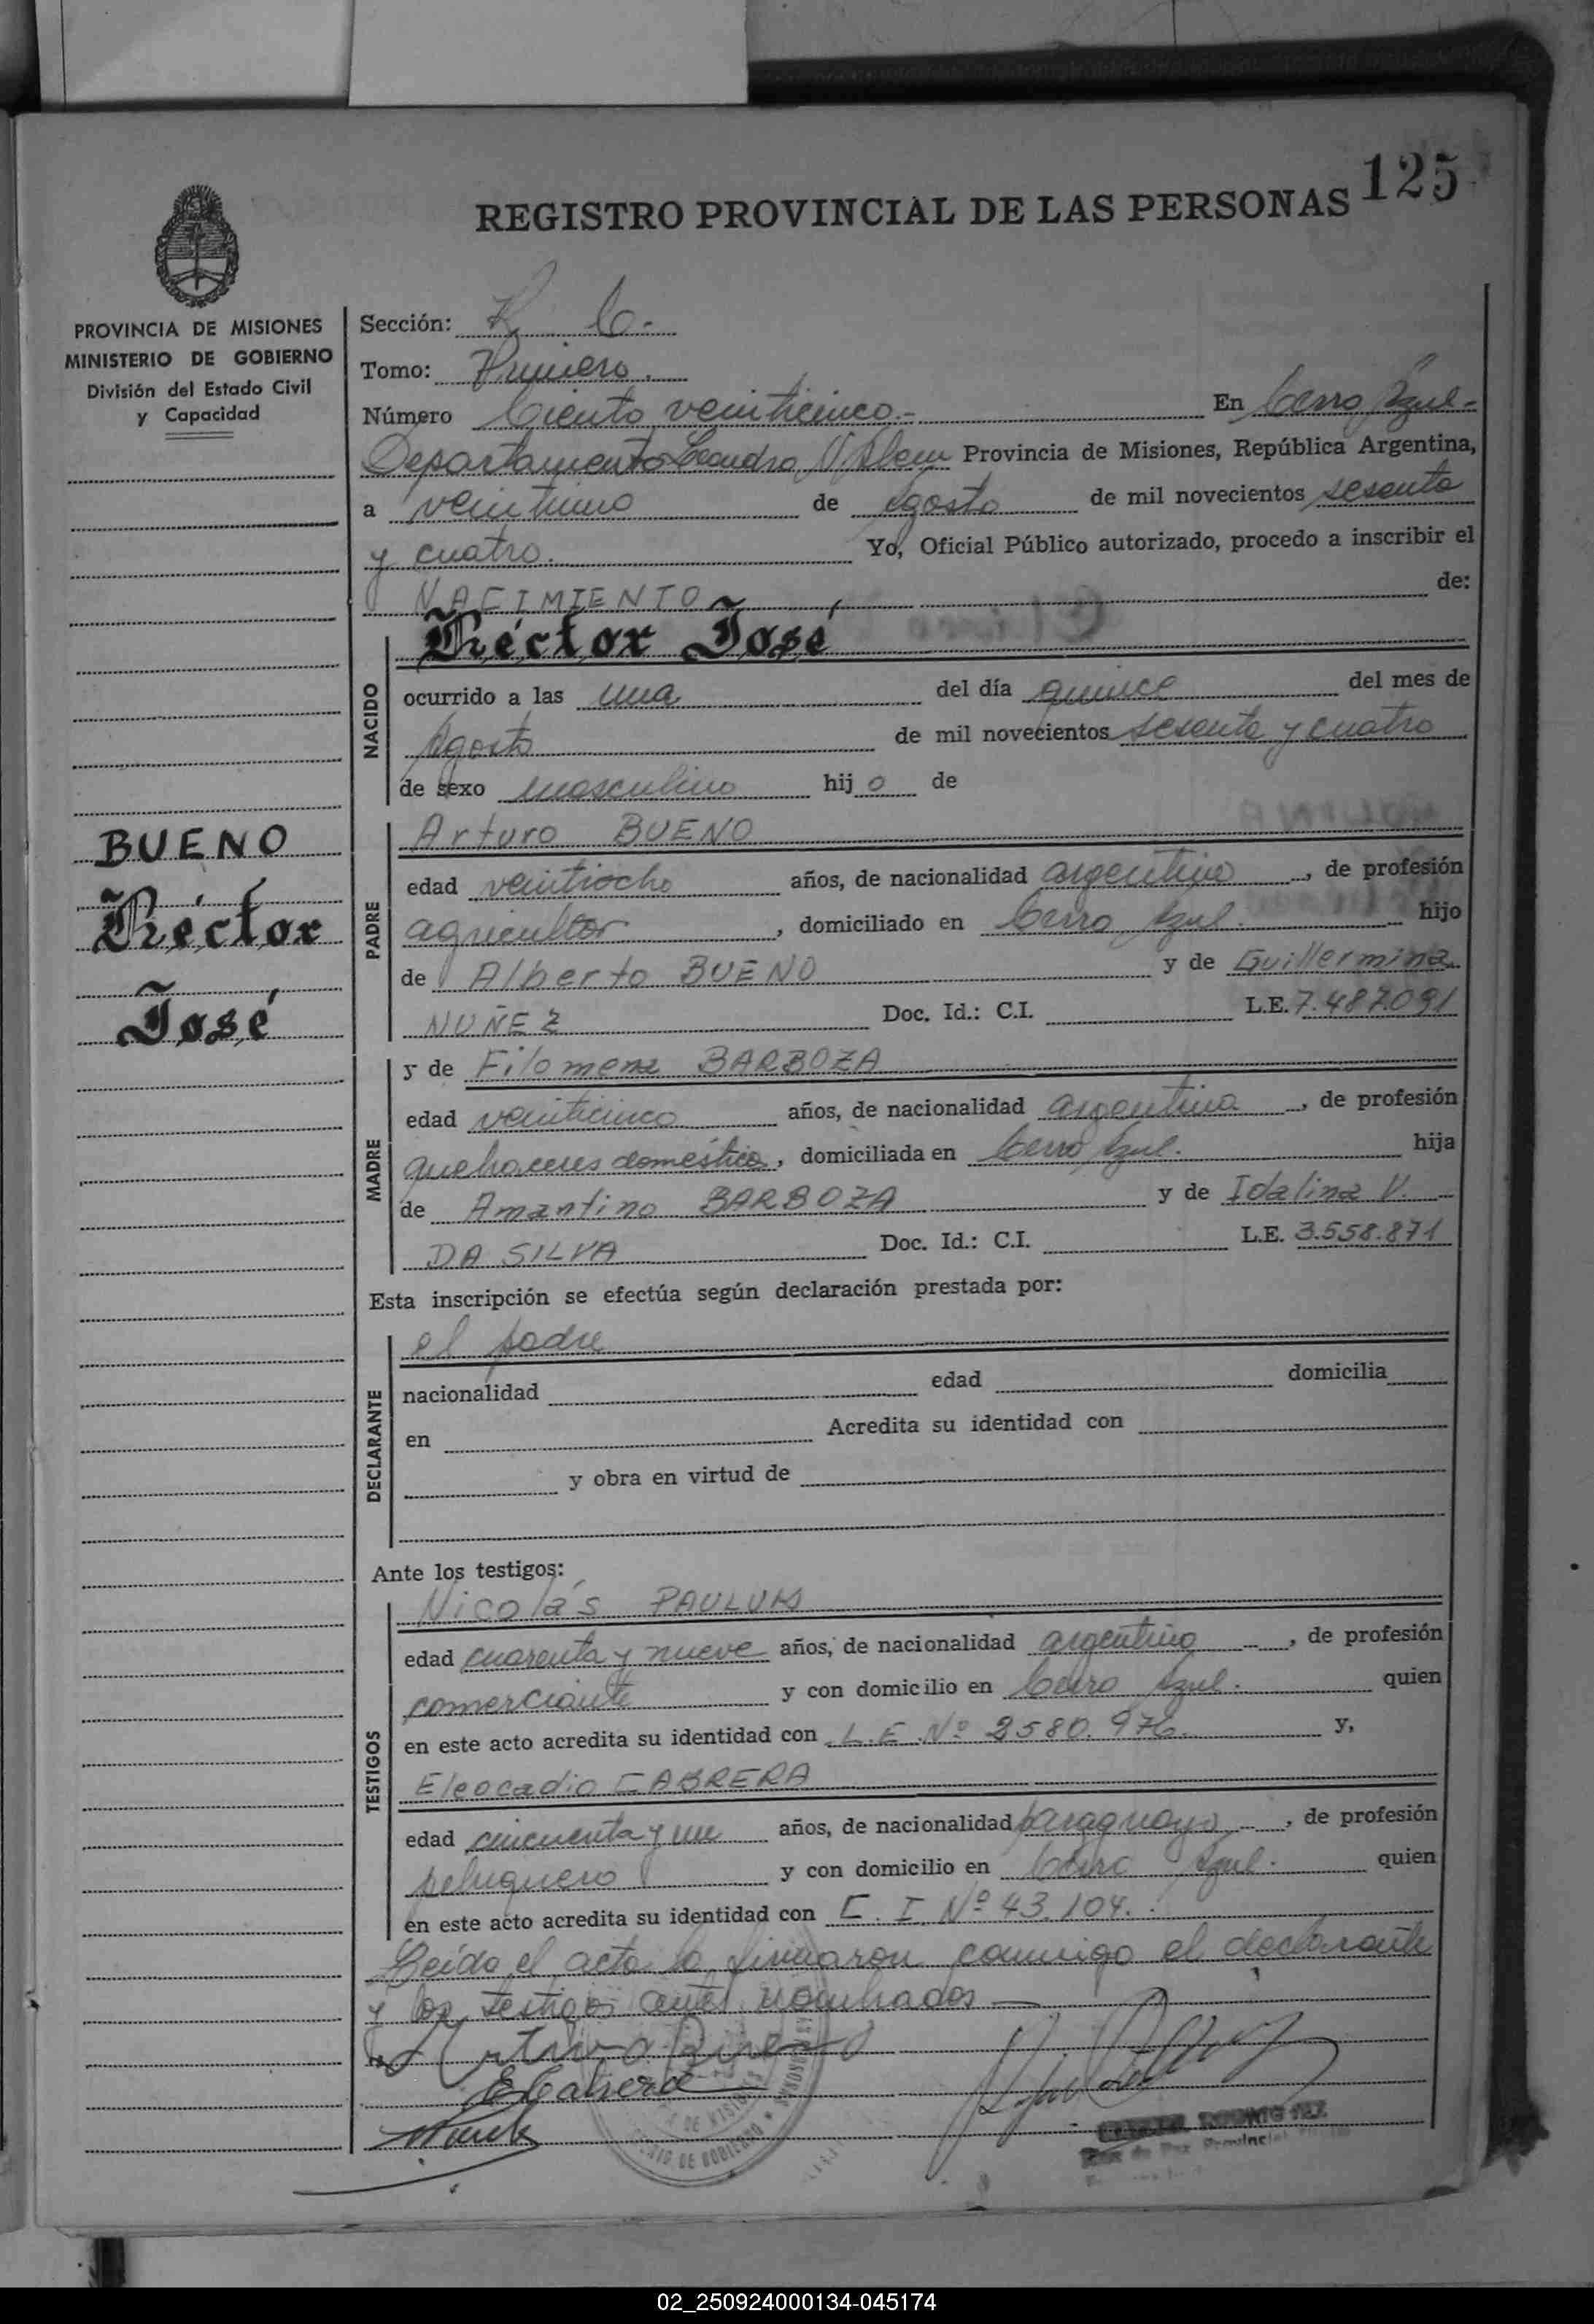 125
REGISTRO PROVINCIAL DE LAS PERSONAS
PROVINCIA DE MISIONES
MINISTERIO DE GOBIERNO
División del Estado Civil
y Capacidad
BUENO
Héctor
José
Sección:
Tomo: Primero.
Número Ciento veinticinco.- En Cerro Azul-
Departamento Leandro N. Alem Provincia de Misiones, República Argentina,
a veintiuno de Agosto de mil novecientos sesenta
y cuatro. Yo, Oficial Público autorizado, procedo a inscribir el
NACIMIENTO de:
NACIDO
Héctor José
ocurrido a las una del día quince del mes de
Agosto de mil novecientos sesenta y cuatro
de sexo masculino hij o de
PADRE
Arturo BUENO
edad veintiocho años, de nacionalidad argentino, de profesión
agricultor, domiciliado en Cerro Azul. hijo
de Alberto BUENO y de Guillermina
NUÑEZ Doc. Id.: C.I. L.E. 7.487.091
MADRE
y de Filomena BARBOZA
edad veinticinco años, de nacionalidad argentina, de profesión
quehaceres doméstico, domiciliada en Cerro Azul. hija
de Amantino BARBOZA y de Idalina V.
DA SILVA Doc. Id.: C.I. L.E. 3.558.871
Esta inscripción se efectúa según declaración prestada por:
DECLARANTE
el padre
nacionalidad edad domicilia
en Acredita su identidad con
y obra en virtud de
Ante los testigos:
TESTIGOS
Nicolás
edad cuarenta y nueve años, de nacionalidad argentino, de profesión
comerciante y con domicilio en Cerro Azul. quien
en este acto acredita su identidad con L.E. Nº 2580.976. y,
Eleocadio CABRERA
edad cincuenta y un años, de nacionalidad paraguayo, de profesión
peluquero y con domicilio en Cerro Azul. quien
en este acto acredita su identidad con C.I. Nº 43.104.
Leída el acta la firmaron conmigo el declarante
y los testigos antes nombrados
Arturo Bueno
ECabrera
02_250924000134-045174